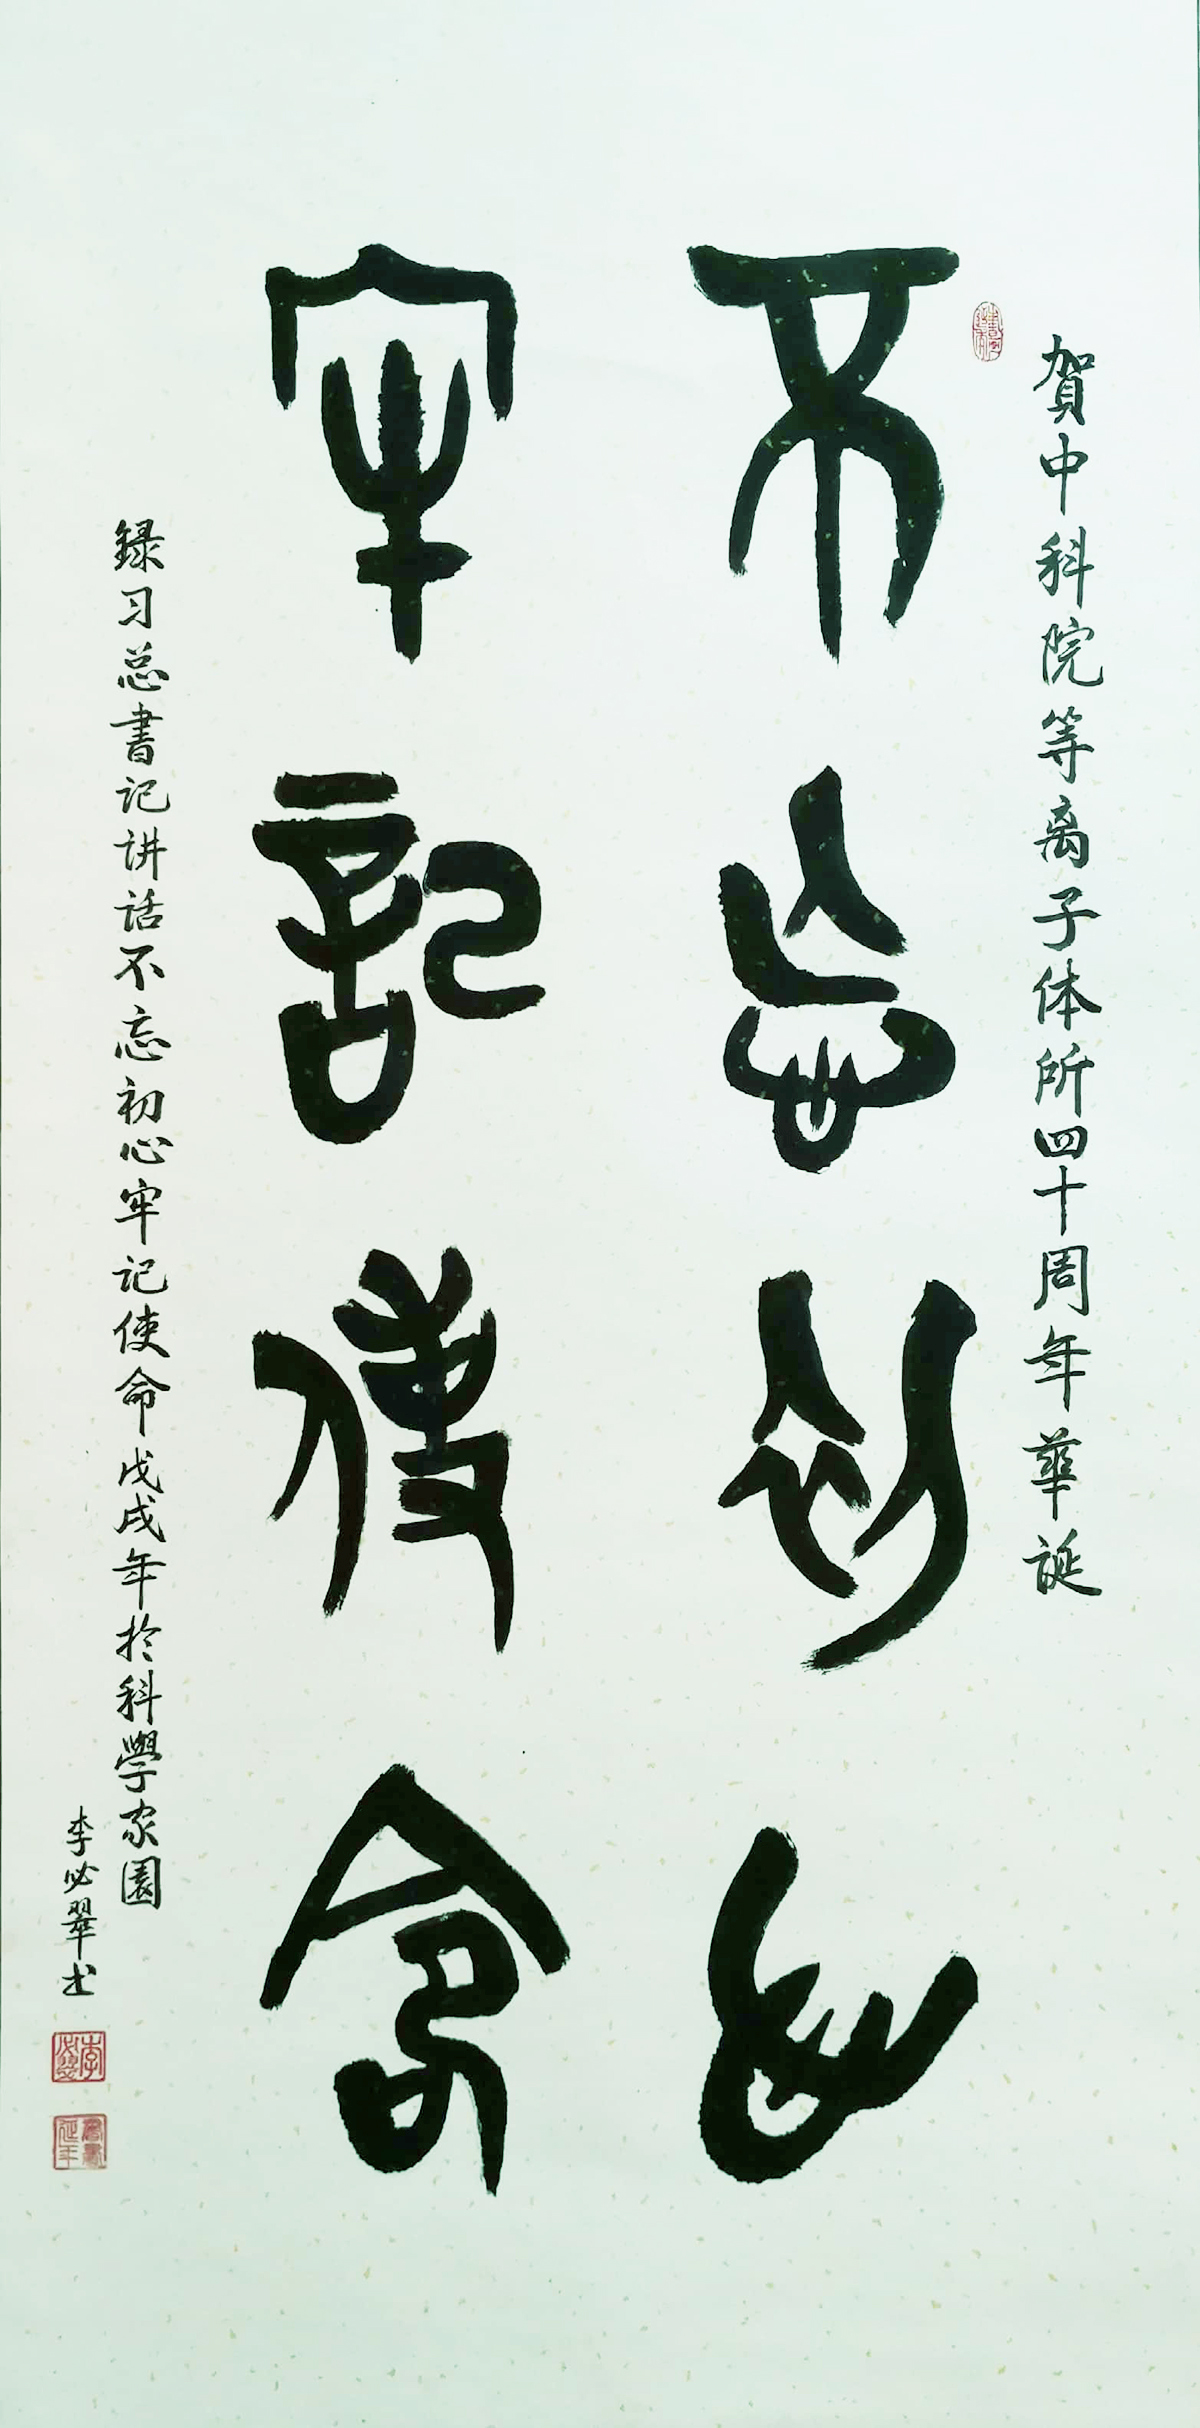 賀中科院等离子体所四十周年華誕
不忘初心
牢記使命
録习总書记讲话不忘初心牢记使命戊戌年於科學家園
李必翠书